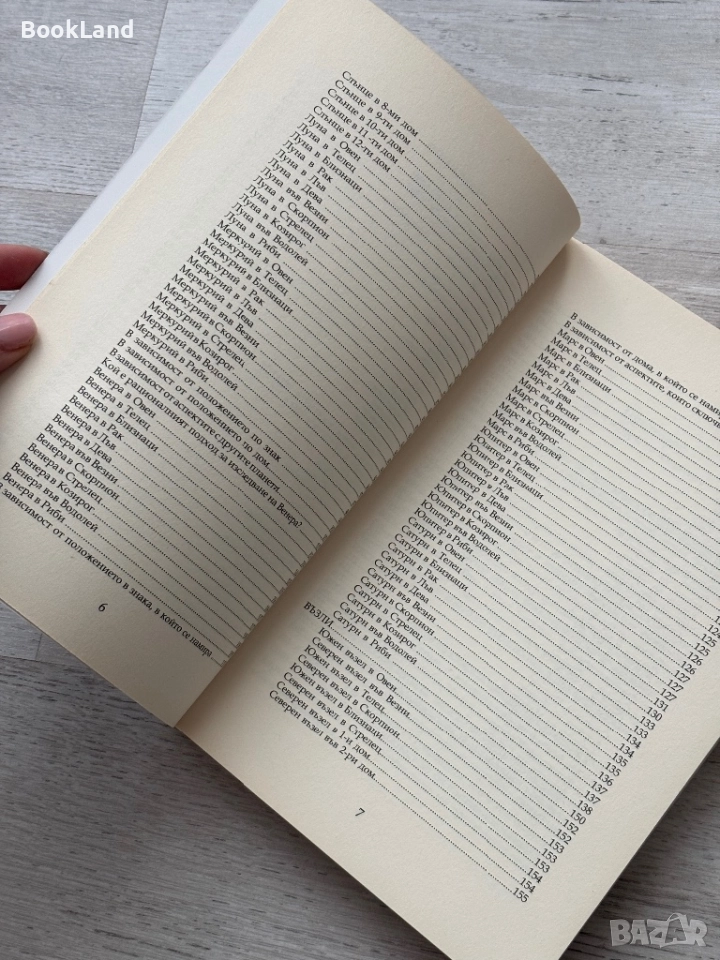 BookLand
Слънце в 8-ми дом
Слънце в 9-ти дом
Слънце в 10-ти дом
Слънце в 11-ти дом
Слънце в 12-ти дом
Луна в Овен
Луна в Телец
Луна в Близнаци
Луна в Рак
Луна в Лъв
Луна в Дева
Луна във Везни
Луна в Скорпион
Луна в Стрелец
Луна в Козирог
Луна във Водолей
Луна в Риби
Меркурий в Овен
Меркурий в Телец
Меркурий в Близнаци
Меркурий в Рак
Меркурий в Лъв
Меркурий в Дева
Меркурий във Везни
Меркурий в Скорпион
Меркурий в Стрелец
Меркурий в Козирог
Меркурий във Водолей
Меркурий в Риби
В зависимост от положението по знак
В зависимост от положението по дом
В зависимост от аспектите с другите планети
Кой е рационалният подход за изследване на Венера?
Венера в Овен
Венера в Телец
Венера в Близнаци
Венера в Рак
Венера в Лъв
Венера в Дева
Венера във Везни
Венера в Скорпион
Венера в Стрелец
Венера в Козирог
Венера във Водолей
Венера в Риби
зависимост от положението в знака, в който се намира
6
В зависимост от дома, в който се намира
В зависимост от аспектите, които сключв
Марс в Овен
Марс в Телец
Марс в Близнаци
Марс в Рак
Марс в Лъв
Марс в Дева
Марс във Везни
Марс в Скорпион
Марс в Стрелец
Марс в Козирог
Марс във Водолей
Марс в Риби
Юпитер в Овен
Юпитер в Телец
Юпитер в Близнаци
Юпитер в Рак
Юпитер в Лъв
Юпитер в Дева
Юпитер във Везни
Юпитер в Скорпион
Юпитер в Козирог
Юпитер във Водолей
Юпитер в Риби
Сатурн в Овен
Сатурн в Телец
Сатурн в Близнаци
Сатурн в Рак
Сатурн в Лъв
Сатурн в Дева
Сатурн във Везни 126
Сатурн в Скорпион 127
Сатурн в Стрелец 127
Сатурн в Козирог 131
Сатурн във Водолей 130
Сатурн в Риби 133
ВЪЗЛИ 133
Южен възел в Овен 134
Северен възел във Везни
Южен възел в Телец
Северен възел в Скорпион
Южен възел в Близнаци
Северен възел в Стрелец
Северен възел в 1-и дом 154
Северен възел във 2-ри дом 155
7
BAZAR